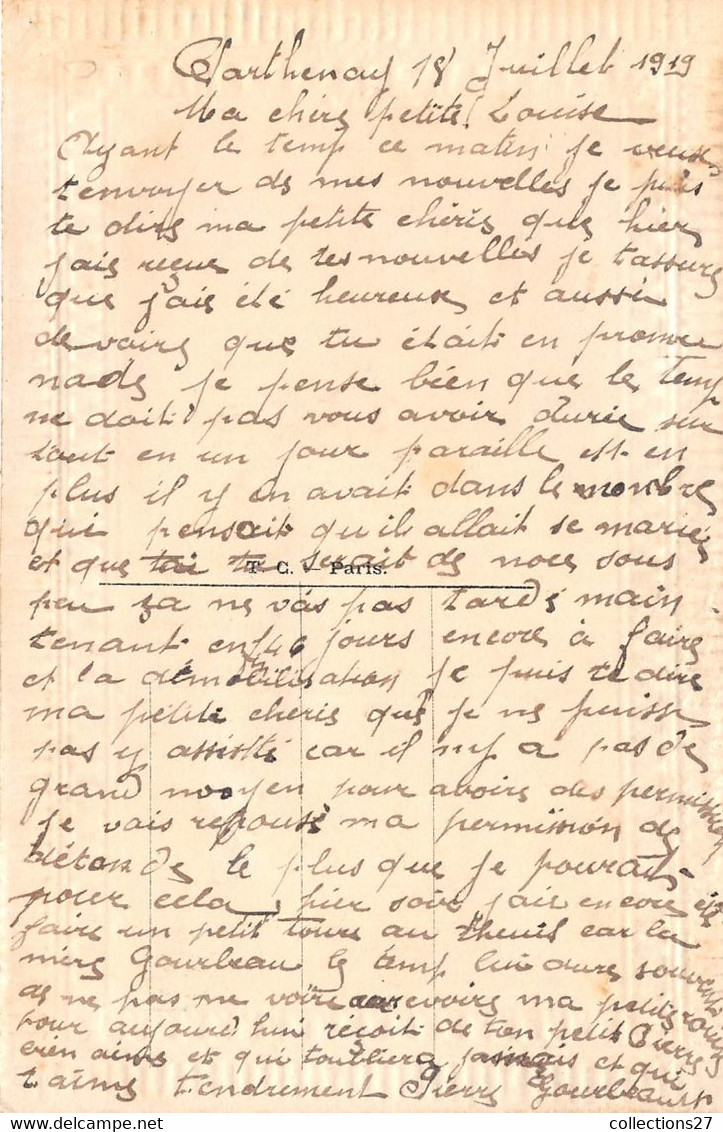 Parthenay 18 Juillet 1919
Ma chire petite Louise
Ayant le temp ce matin je veux
t'envoyer de mes nouvelles je puis
te dire ma petite chérie que hier
jais reçue de tes nouvelles je tassure
que j'aie été heureux et aussi
de voire que tu était en prome
nade je pense bien que le temp
ne doit pas vous avoir durée sur
tout en un jour paraille est en
plus il y en avait dans le nombre
qui pensait qu'il allait se marié
et que tu serait de noce sous
T. C. - Paris.
peu sa ne vas pas tardé main
tenant en 46 jours encore à faire
et la démobilisation je puis te dire
ma petite cherie que je ne puisse
pas y assisté car il ny a pas de
grand moyen pour avoire des permission
je vais repousé ma permission de
détende le plus que je pourais
pour cela, hier soir jaie encore été
faire un petit tours au theuil car la
mère Gourbeau le temp lui dure souvent
de ne pas me voire revoire ma petite
pour aujourd'hui reçoit de ton petit Pierre
bien aimé et qui toubliera jamais et qui
t'aime tendrement Pierre Gourbeault
collections27